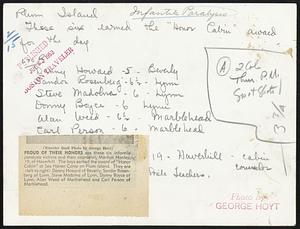 Plum Island Infantile Paralysis
These six earned the "Honor Cabin" award
for the day
Danny Howard - 5 - Beverly
Sandor Rosenberg - 6½ - Lynn
Steve Madeline - 6 - Lynn
Donny Boyce - 6 Lynn
Alan Weed - 6½ - Marblehead
Earl Person - 6 - Marblehead
19 - Haverhill - cabin
counselor
A 2 Col
TRAVELER
(Traveler Staff Photo by George Hoyt)
PROUD OF THESE HONORS are these six infantile
paralysis victims and their counselor,
19, of Haverhill. The boys earned the award of "Honor
Cabin" at Sea Haven Camp on Plum Island. They are
(left to right) Danny Howard of Beverly, Sandor Rosen-
berg of Lynn, Steve Madeline of Lynn, Donny Boyce of
Lynn, Alan Weed of Marblehead and Earl Person of
Marblehead.
Photo by
GEORGE HOYT